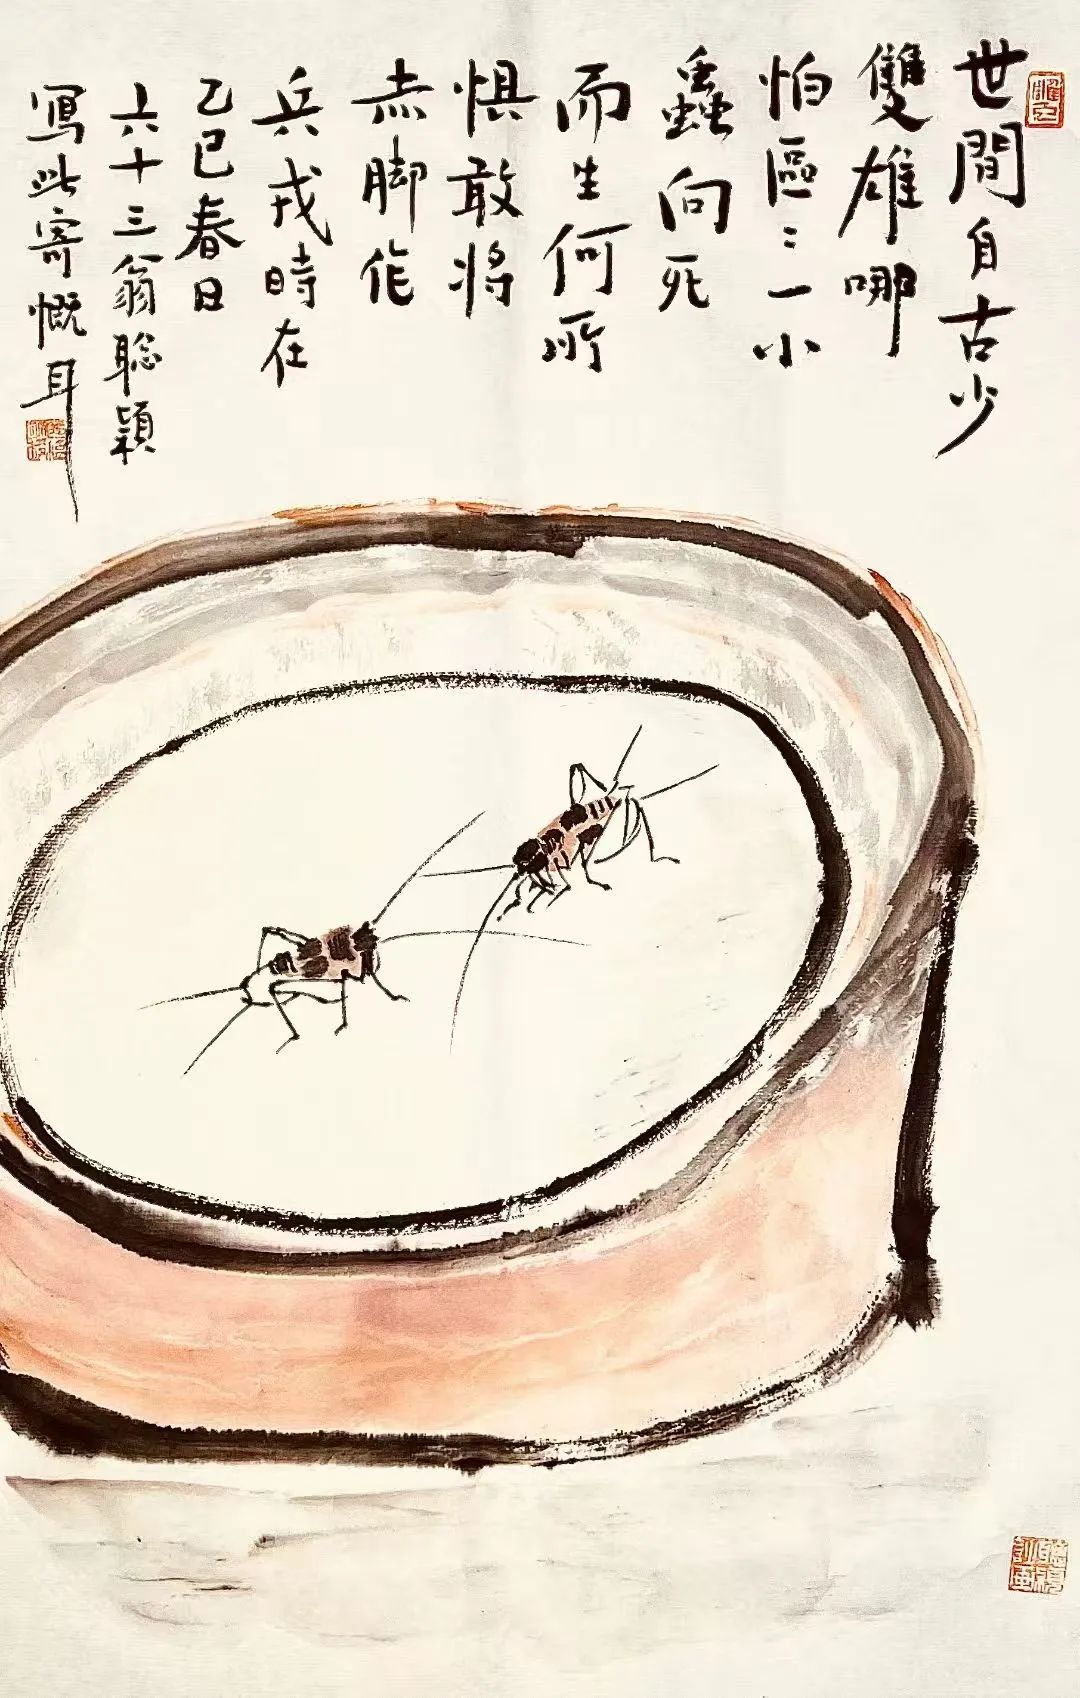 世間自古少
雙雄哪
怕區:一小
蟲向死
而生何所
惧敢将
赤脚作
兵戎時在
乙巳春日
六十三翁聡穎
寫此寄慨耳